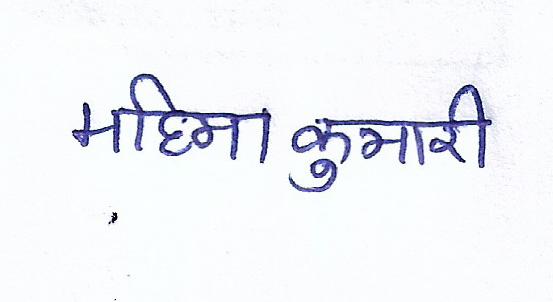 महिमा कुमारी